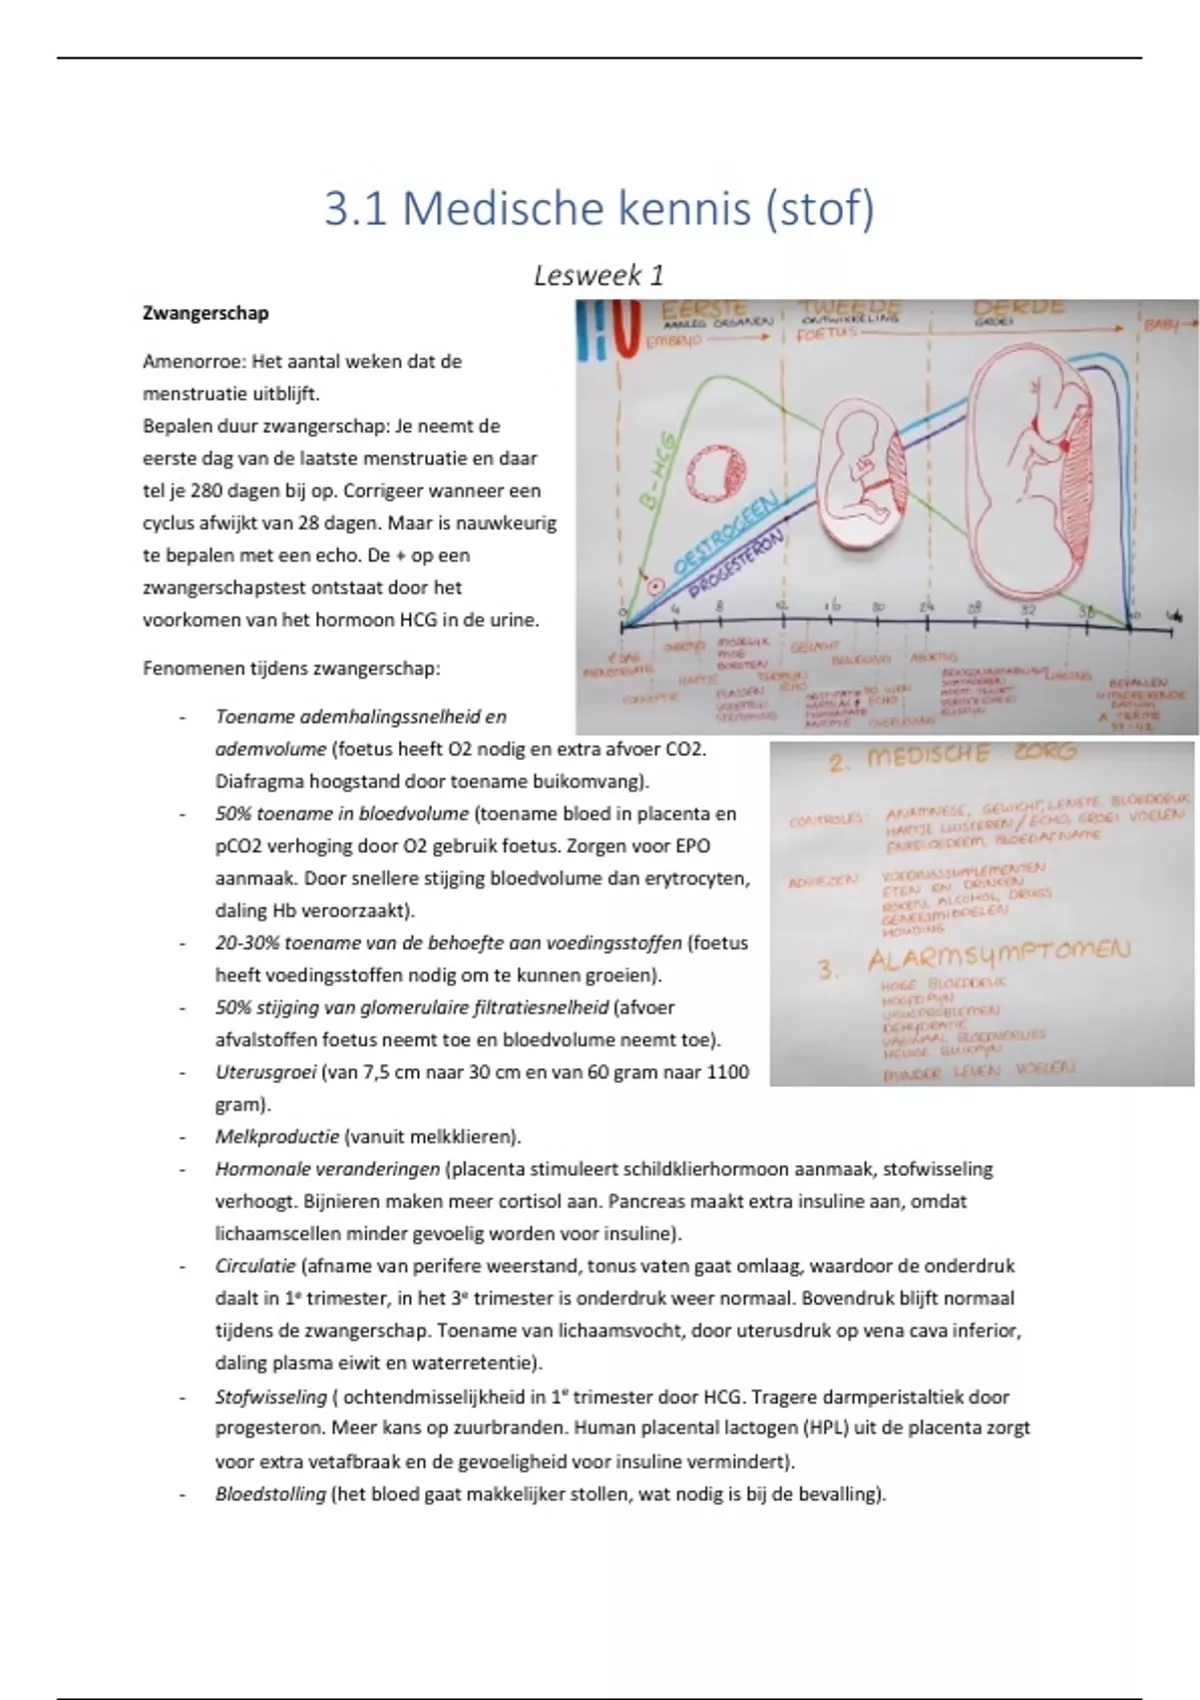 3.1 Medische kennis (stof)
Lesweek 1
Zwangerschap
Amenorroe: Het aantal weken dat de
menstruatie uitblijft.
Bepalen duur zwangerschap: Je neemt de
eerste dag van de laatste menstruatie en daar
tel je 280 dagen bij op. Corrigeer wanneer een
cyclus afwijkt van 28 dagen. Maar is nauwkeurig
te bepalen met een echo. De + op een
zwangerschapstest ontstaat door het
voorkomen van het hormoon HCG in de urine.
Fenomenen tijdens zwangerschap:
EERSTE TWEEDE DERDE
AANLEG ORGANEN ONTWIKKELING GROEI
EMBRYO FOETUS BABY
B-HCG
OESTROGEEN
PROGESTERON
0 4 8 12 16 20 24 28 32
MENSTRUATIE
HARTJE
MISSELIJK
MOE
BORSTEN
PLASSEN
STEMMING
TERMIJN
ECHO
GESLACHT
BEWEGING
20 WKN
ECHO
ABORTUS
LIGGING
BEVALLEN
UITGEREKENDE
DATUM
A TERME
37-42
- Toename ademhalingssnelheid en
ademvolume (foetus heeft O2 nodig en extra afvoer CO2.
Diafragma hoogstand door toename buikomvang).
- 50% toename in bloedvolume (toename bloed in placenta en
pCO2 verhoging door O2 gebruik foetus. Zorgen voor EPO
aanmaak. Door snellere stijging bloedvolume dan erytrocyten,
daling Hb veroorzaakt).
- 20-30% toename van de behoefte aan voedingsstoffen (foetus
heeft voedingsstoffen nodig om te kunnen groeien).
- 50% stijging van glomerulaire filtratiesnelheid (afvoer
afvalstoffen foetus neemt toe en bloedvolume neemt toe).
- Uterusgroei (van 7,5 cm naar 30 cm en van 60 gram naar 1100
gram).
2. MEDISCHE ZORG
CONTROLES: ANAMNESE, GEWICHT, LENGTE, BLOEDDRUK
HARTJE LUISTEREN / ECHO, GROEI VOELEN
ENKELOEDEEM, BLOEDAFNAME
ADVIEZEN VOEDINGSSUPPLEMENTEN
ETEN EN DRINKEN
ROKEN, ALCOHOL, DRUGS
GENEESMIDDELEN
HOUDING
3. ALARMSYMPTOMEN
HOGE BLOEDDRUK
HOOFDPIJN
VISUSPROBLEMEN
DEHYDRATIE
VAGINAAL BLOEDVERLIES
HEVIGE BUIKPIJN
MINDER LEVEN VOELEN
- Melkproductie (vanuit melkklieren).
- Hormonale veranderingen (placenta stimuleert schildklierhormoon aanmaak, stofwisseling
verhoogt. Bijnieren maken meer cortisol aan. Pancreas maakt extra insuline aan, omdat
lichaamscellen minder gevoelig worden voor insuline).
- Circulatie (afname van perifere weerstand, tonus vaten gaat omlaag, waardoor de onderdruk
daalt in 1e trimester, in het 3e trimester is onderdruk weer normaal. Bovendruk blijft normaal
tijdens de zwangerschap. Toename van lichaamsvocht, door uterusdruk op vena cava inferior,
daling plasma eiwit en waterretentie).
- Stofwisseling ( ochtendmisselijkheid in 1e trimester door HCG. Tragere darmperistaltiek door
progesteron. Meer kans op zuurbranden. Human placental lactogen (HPL) uit de placenta zorgt
voor extra vetafbraak en de gevoeligheid voor insuline vermindert).
- Bloedstolling (het bloed gaat makkelijker stollen, wat nodig is bij de bevalling).